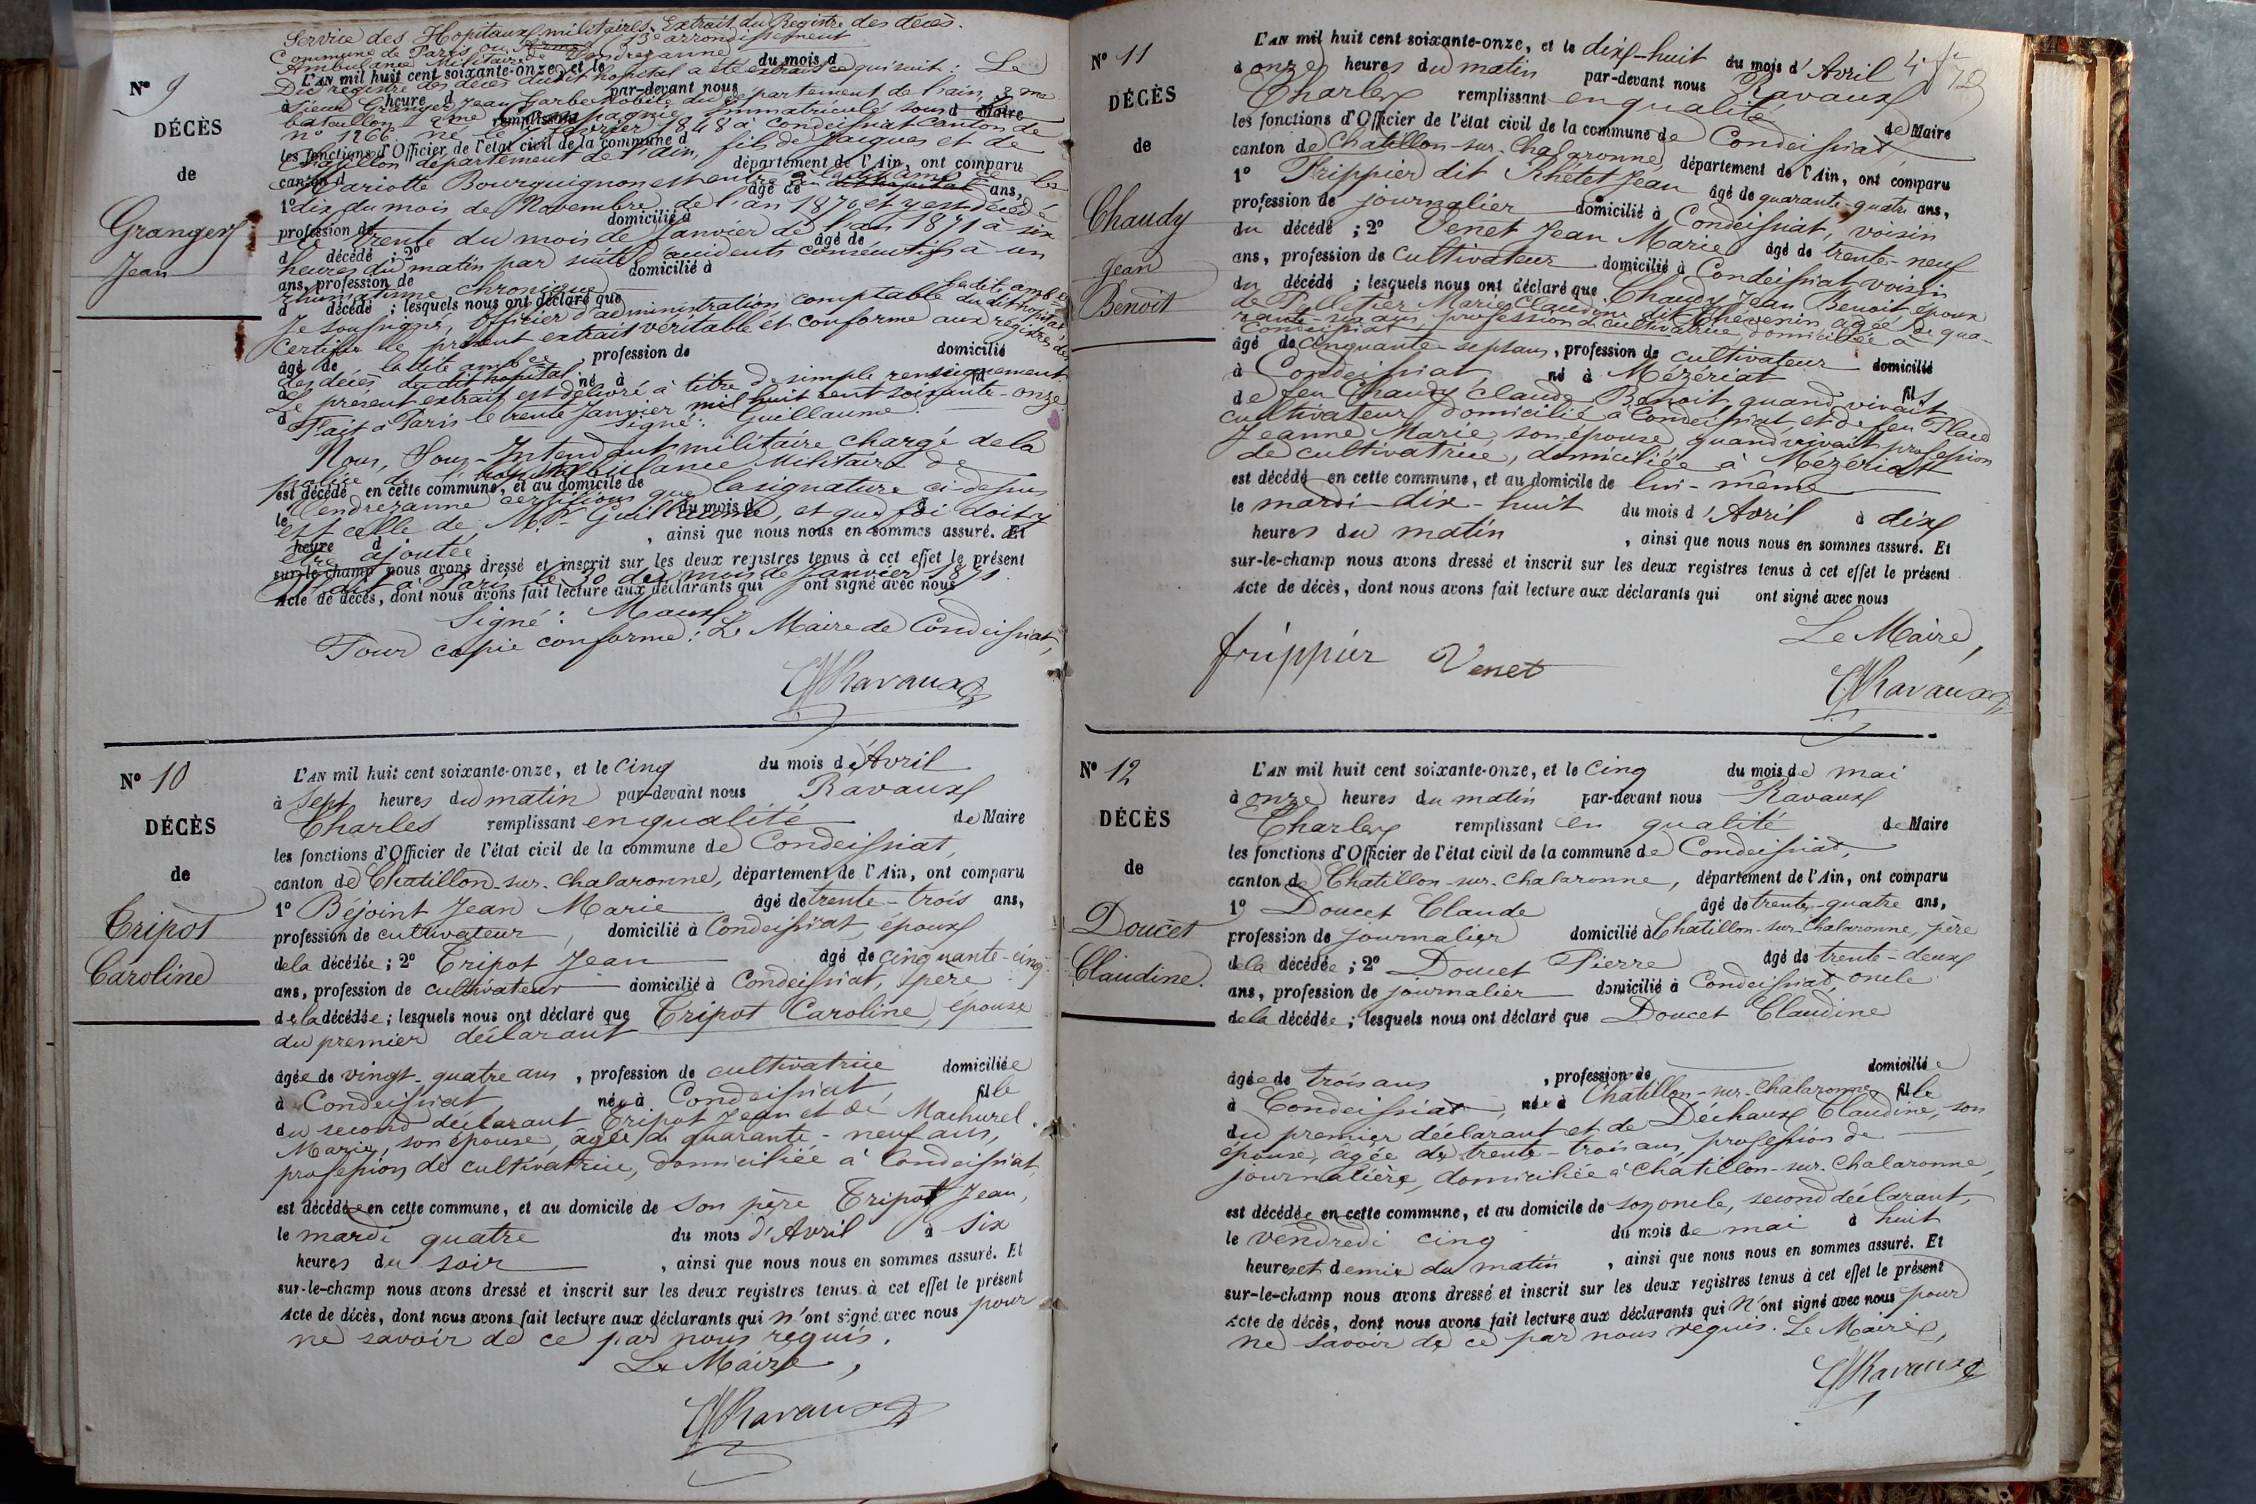 Service des Hopitaux militaires. Extrait du Registre des décès.
Commune de Paris 13e arrondissement
Ambulance Militaire de Vendrezanne
N° 9
L'AN mil huit cent soixante-onze, et le du mois d
Du registre des décès dudit hopital a été extrait ce qui suit : Le
à heure d par-devant nous
Sieur Granger Jean Garde Mobile du département de l'ain, 3me
DÉCÈS
bataillon, compagnie immatriculé sous
remplissant d Maire
n° 1266 né le février 1848 à Condeissiat canton de
les fonctions d'Officier de l'état civil de la commune d
Chatillon département de l'ain, fils de Jacques et de
de
canton d département de l'Ain, ont comparu
Mariotte Bourguignon est entré à ladite amb. le
1° âgé de ans,
dix du mois de Novembre de l'an 1870, et y est décédé
Granger
profession de domicilié à
le trente du mois de Janvier de l'an 1871 à six
Jean
d décédé ; 2° âgé de
heures du matin par suite d'accidents consécutifs à un
ans, profession de domicilié à
rhumatisme chronique
d décédé ; lesquels nous ont déclaré que
Je soussigné, Officier d'administration comptable dudit hopital
certifie le présent extrait véritable et conforme aux régistres
âgé de , profession de domicilié
des décès dudit hopital
à né à fil
Le présent extrait est délivré à titre de simple renseignement.
Fait à Paris le trente Janvier mil huit cent soixante-onze
Signé : Guillaume.
Nous, Sous-Intendant militaire chargé de la
police de l'ambulance Militaire de
est décédé en cette commune, et au domicile de
Vendrezanne certifions que la signature ci-dessus
le du mois d à
est celle de Mr. Guillaume, et que foi doit y
heure d , ainsi que nous nous en sommes assuré. Et
être ajoutée.
sur-le-champ nous avons dressé et inscrit sur les deux registres tenus à cet effet le présent
à Paris le 30 du mois de Janvier 1871.
Acte de décès, dont nous avons fait lecture aux déclarants qui ont signé avec nous
Signé : Maux
Pour copie conforme : Le Maire de Condeissiat,
Ravaux
N° 10
L'AN mil huit cent soixante-onze, et le cinq du mois d'Avril
à sept heures du matin par-devant nous Ravaux
DÉCÈS
Charles remplissant en qualité de Maire
les fonctions d'Officier de l'état civil de la commune de Condeissiat,
de
canton de Chatillon-sur-Chalaronne, département de l'Ain, ont comparu
1° Béjoint Jean Marie âgé de trente-trois ans,
Tripot
profession de cultivateur, domicilié à Condeissiat, époux
Caroline
de la décédée ; 2° Tripot Jean âgé de cinquante-cinq
ans, profession de cultivateur domicilié à Condeissiat, père
de la décédée ; lesquels nous ont déclaré que Tripot Caroline, épouse
du premier déclarant
âgée de vingt-quatre ans, profession de cultivatrice domiciliée
à Condeissiat, née à Condeissiat, fille
du second déclarant Tripot Jean et de Machurel
Marie, son épouse, âgée de quarante-neuf ans,
profession de cultivatrice, domiciliée à Condeissiat,
est décédée en cette commune, et au domicile de son père Tripot Jean,
le mardi quatre du mois d'Avril à six
heures du soir , ainsi que nous nous en sommes assuré. Et
sur-le-champ nous avons dressé et inscrit sur les deux registres tenus à cet effet le présent
Acte de décès, dont nous avons fait lecture aux déclarants qui n'ont signé avec nous pour
ne savoir de ce par nous requis.
Le Maire,
Ravaux
N° 11
L'AN mil huit cent soixante-onze, et le dix-huit du mois d'Avril
à onze heures du matin par-devant nous Ravaux
DÉCÈS
Charles remplissant en qualité de Maire
les fonctions d'Officier de l'état civil de la commune de Condeissiat,
de
canton de Chatillon-sur-Chalaronne, département de l'Ain, ont comparu
1° Frippier dit Rhétet Jean âgé de quarante-quatre ans,
Chaudy
profession de journalier domicilié à Condeissiat, voisin
du décédé ; 2° Venet Jean Marie âgé de trente-neuf
Jean
ans, profession de cultivateur domicilié à Condeissiat, voisin
Benoit
du décédé ; lesquels nous ont déclaré que Chaudy Jean Benoit époux
de Pelletier Marie Claudine dit Thevenin âgée de qua-
rante-six ans, profession de cultivatrice, domiciliée à
Condeissiat
âgé de cinquante-sept ans, profession de cultivateur domicilié
à Condeissiat, né à Mézériat fils
de feu Chaudy Claude Benoit, quand vivait
cultivateur, domicilié à Condeissiat, et de feu Place
Jeanne Marie, son épouse, quand vivait profession
de cultivatrice, domiciliée à Mézériat
est décédé en cette commune, et au domicile de lui-même
le mardi dix-huit du mois d'Avril à dix
heures du matin , ainsi que nous nous en sommes assuré. Et
sur-le-champ nous avons dressé et inscrit sur les deux registres tenus à cet effet le présent
Acte de décès, dont nous avons fait lecture aux déclarants qui ont signé avec nous
Le Maire,
frippier Venet
Ravaux
N° 12
L'AN mil huit cent soixante-onze, et le cinq du mois de mai
à onze heures du matin par-devant nous Ravaux
DÉCÈS
Charles remplissant en qualité de Maire
les fonctions d'Officier de l'état civil de la commune de Condeissiat,
de
canton de Chatillon-sur-Chalaronne, département de l'Ain, ont comparu
1° Doucet Claude âgé de trente-quatre ans,
Doucet
profession de journalier domicilié à Chatillon-sur-Chalaronne, père
de la décédée ; 2° Doucet Pierre âgé de trente-deux
Claudine.
ans, profession de journalier domicilié à Condeissiat, oncle
de la décédée ; lesquels nous ont déclaré que Doucet Claudine
âgée de trois ans , profession de domiciliée
à Condeissiat, née à Chatillon-sur-Chalaronne fille
du premier déclarant et de Déchaux Claudine, son
épouse, âgée de trente-trois ans, profession de
journalière, domiciliée à Chatillon-sur-Chalaronne,
est décédée en cette commune, et au domicile de son oncle, second déclarant,
le vendredi cinq du mois de mai à huit
heures et demie du matin , ainsi que nous nous en sommes assuré. Et
sur-le-champ nous avons dressé et inscrit sur les deux registres tenus à cet effet le présent
Acte de décès, dont nous avons fait lecture aux déclarants qui n'ont signé avec nous pour
ne savoir de ce par nous requis. Le Maire,
Ravaux